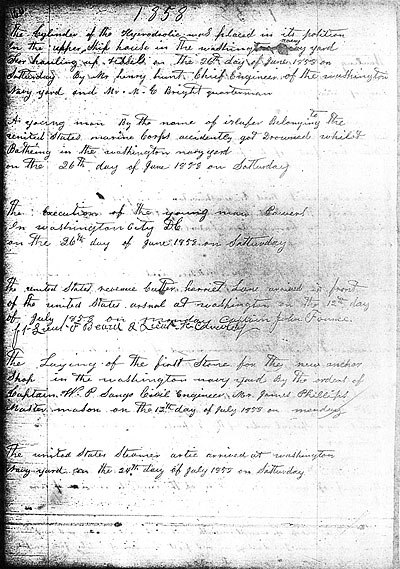 1858
The Cylinder of the Hydroaolic was placed in its position
In the upper Ship house in the washington navy yard
For hauling up on the 26th day of June 1858 on
Satturday By Mr henry hunt Chief Engineer of the washington
Navy yard and Mr. M. G Bright quarterman
A young man By the name of Belonging to the
united States marine Corps accidently got Drowned whilst
Bathing in the washington navy yard
on the 26th day of June 1858 on Satturday
The Execution of the young man Powers
In washington City D.C.
on the 26th day of June 1858 on Satturday
The united States revenue Cutter harriet Lane arrived in front
of the united States arsnal at washington on the 12th day
of July 1858 on monday Captain John Faunce
1st Lieut &
The Laying of the first Stone for the new anchor
Shop in the washington navy yard By the orders of
Captain W. P. Sanger Civil Engineer Mr. James Phillips
Master mason on the 12th day of July 1858 on monday
The united States Steamer artic arrived at washington
Navy yard on the 24th day of July 1858 on Satturday